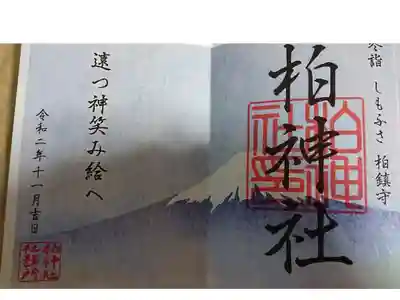 奉詣 しもふさ 柏鎮守
柏神社
柏神社印
遠つ神笑み給へ
令和二年十一月吉日